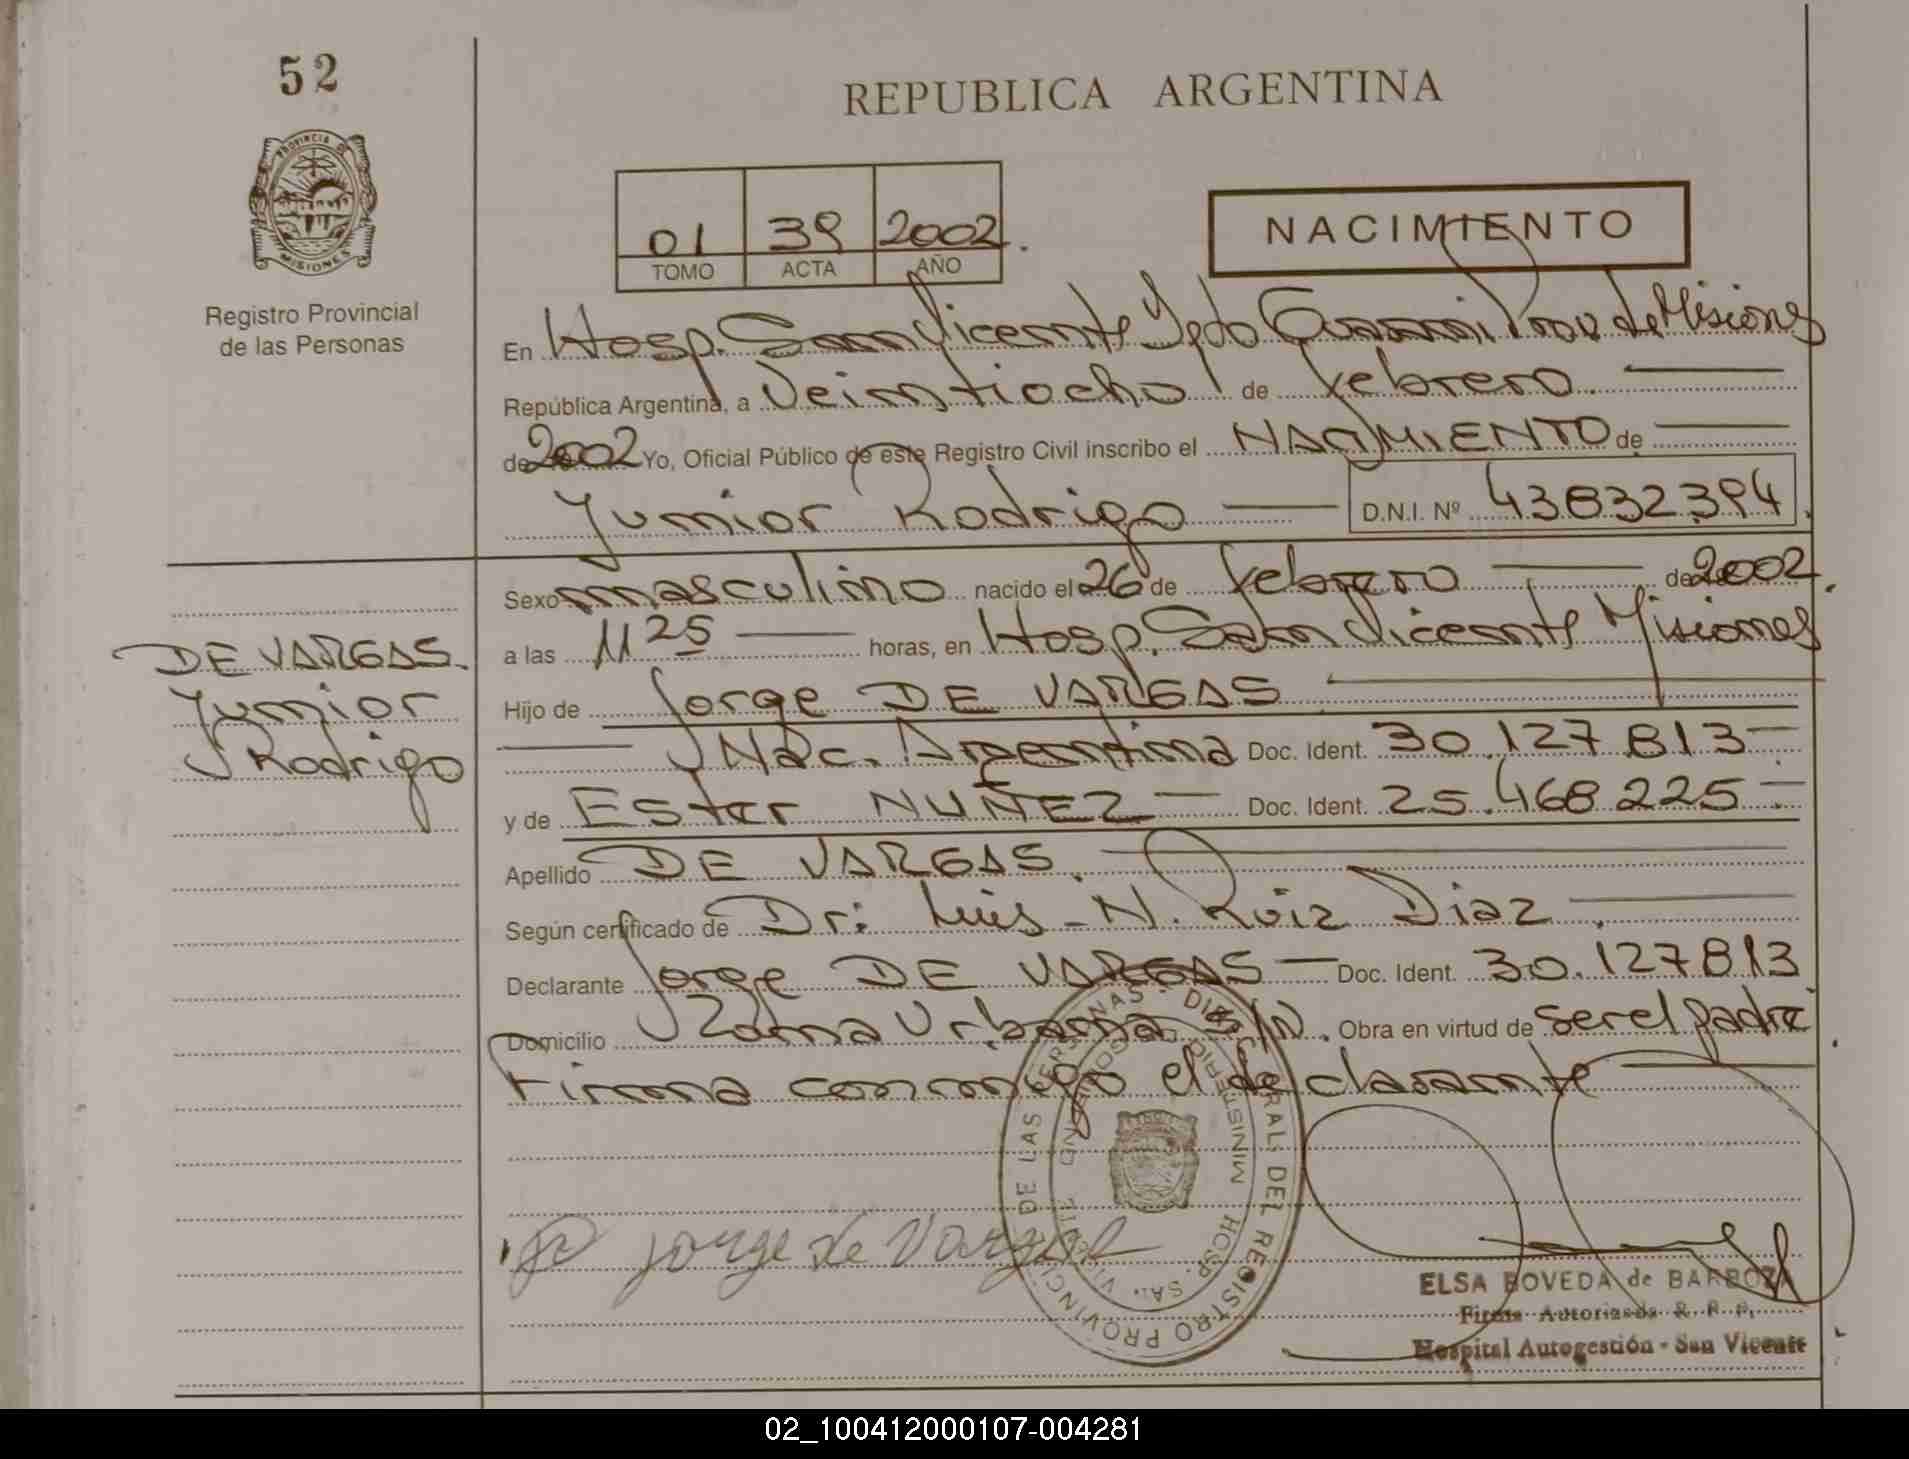 52
REPUBLICA ARGENTINA
PROVINCIA DE
MISIONES
Registro Provincial
de las Personas
01 39 2002.
TOMO ACTA AÑO
NACIMIENTO
En Hosp. San Vicente Dpto Guaraní Prov de Misiones
República Argentina, a Veintiocho de febrero
de 2002 Yo, Oficial Público de este Registro Civil inscribo el NACIMIENTO de
Junior Rodrigo D.N.I. Nº 43832394.
Sexo masculino nacido el 26 de febrero de 2002.
a las 11 25 horas, en Hosp. San Vicente Misiones
Hijo de Jorge DE VARGAS
Nac. Argentina Doc. Ident. 30.127813
y de Ester NUÑEZ Doc. Ident. 25.468225
Apellido DE VARGAS.
Según certificado de Dr: Luis N. Ruiz Diaz
Declarante Jorge DE VARGAS Doc. Ident. 30.127813
Domicilio Zona Urbana S/N. Obra en virtud de ser el padre
Firma conmigo el declarante
DE VARGAS.
Junior
Rodrigo
Jorge de Vargas
DEL REGISTRO PROVINCIAL DE LAS PERSONAS
MINISTERIO DE GOBIERNO
HOSP. SAN VICENTE
ELSA BOVEDA de BARBOZA
Firma Autorizada R. P. P.
Hospital Autogestión - San Vicente
02_100412000107-004281